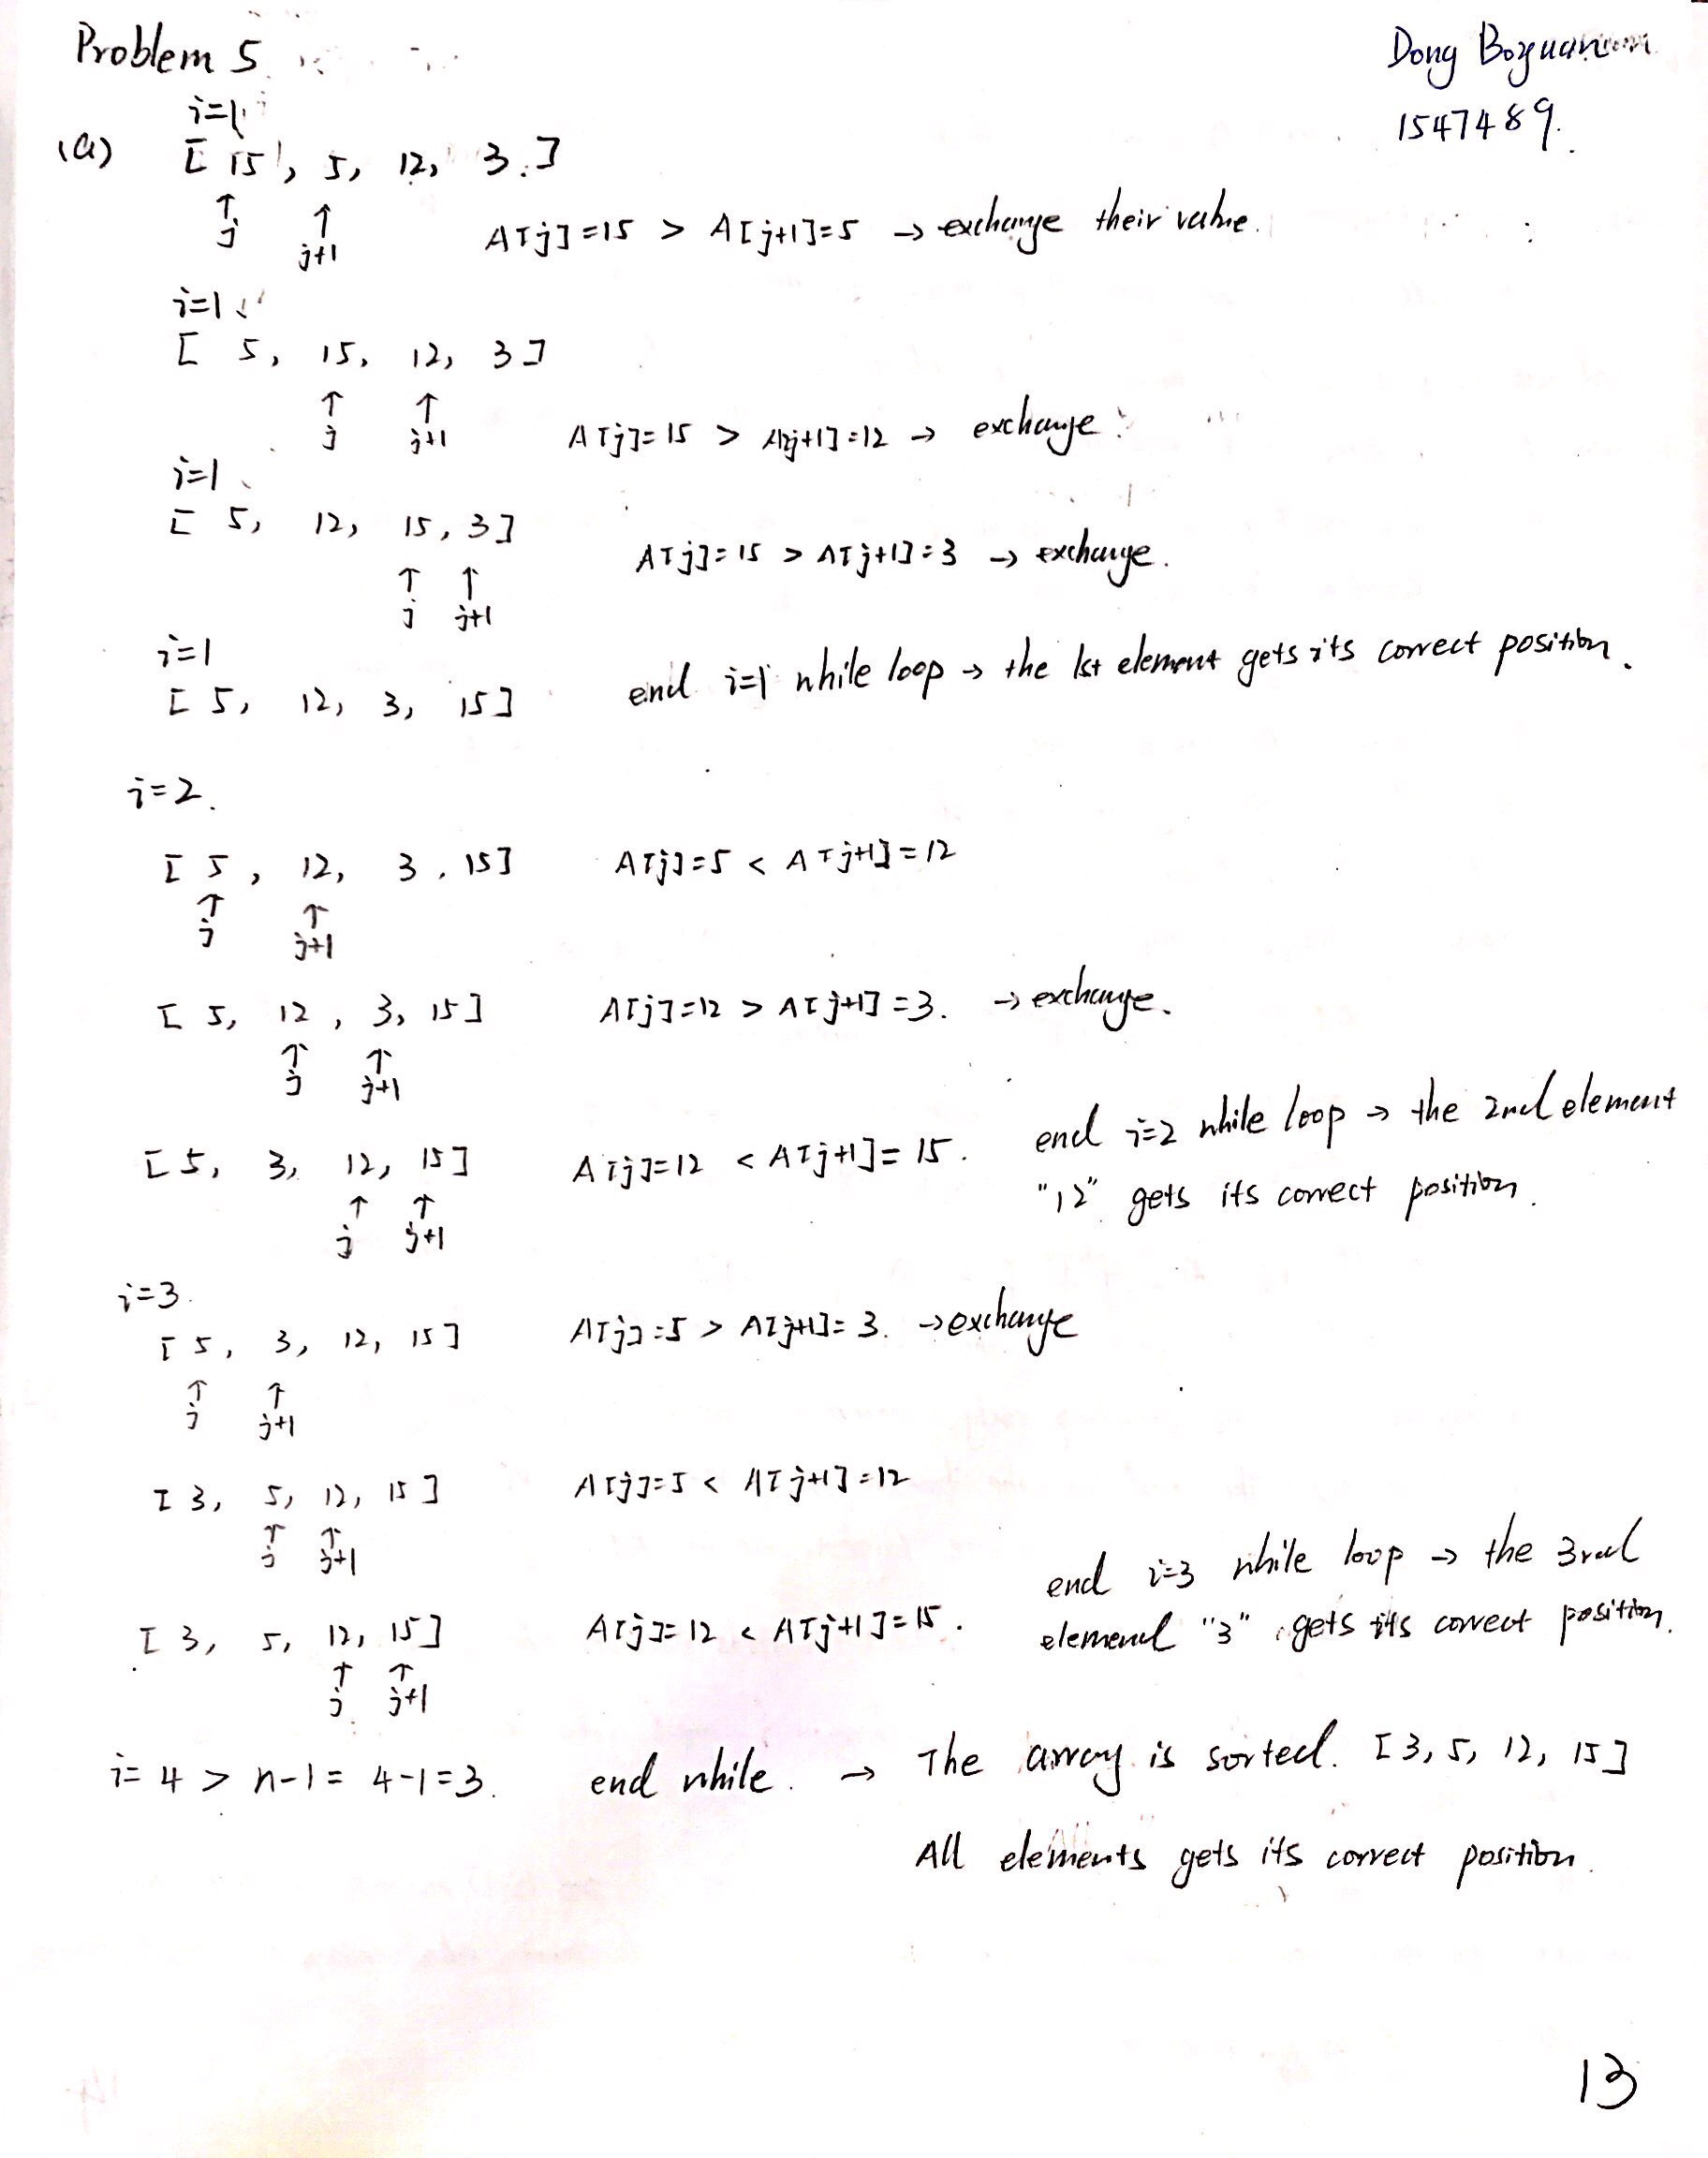 Problem 5
Dong Boyuan
1547489.
i=1
(a) [ 15, 5, 12, 3.]
↑ ↑
j j+1 A[j]=15 > A[j+1]=5 → exchange their value.
i=1
[ 5, 15, 12, 3 ]
↑ ↑
j j+1 A[j]=15 > A[j+1]=12 → exchange.
i=1
[ 5, 12, 15, 3 ]
↑ ↑ A[j]=15 > A[j+1]=3 → exchange.
j j+1
i=1
[ 5, 12, 3, 15 ] end i=1 while loop → the 1st element gets its correct position.
i=2.
[ 5, 12, 3, 15] A[j]=5 < A[j+1]=12
↑ ↑
j j+1
[ 5, 12, 3, 15 ] A[j]=12 > A[j+1]=3. → exchange.
↑ ↑
j j+1
[ 5, 3, 12, 15 ] A[j]=12 < A[j+1]=15. end i=2 while loop → the 2nd element
↑ ↑ "12" gets its correct position.
j j+1
i=3.
[ 5, 3, 12, 15 ] A[j]=5 > A[j+1]=3. → exchange
↑ ↑
j j+1
[ 3, 5, 12, 15 ] A[j]=5 < A[j+1]=12
↑ ↑
j j+1
end i=3 while loop → the 3rd
[ 3, 5, 12, 15 ] A[j]=12 < A[j+1]=15. element "3" gets its correct position.
↑ ↑
j j+1
i=4 > n-1=4-1=3. end while. → The array is sorted. [3, 5, 12, 15]
All elements gets its correct position.
13